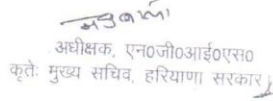 अधीक्षक, एन०जी०आई०एस०
कृतेः मुख्य सचिव, हरियाणा सरकार